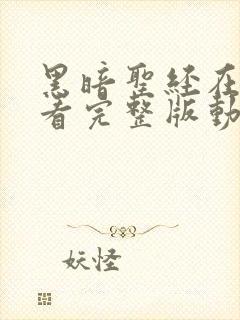 黑暗聖經在
看完整版動
妖怪